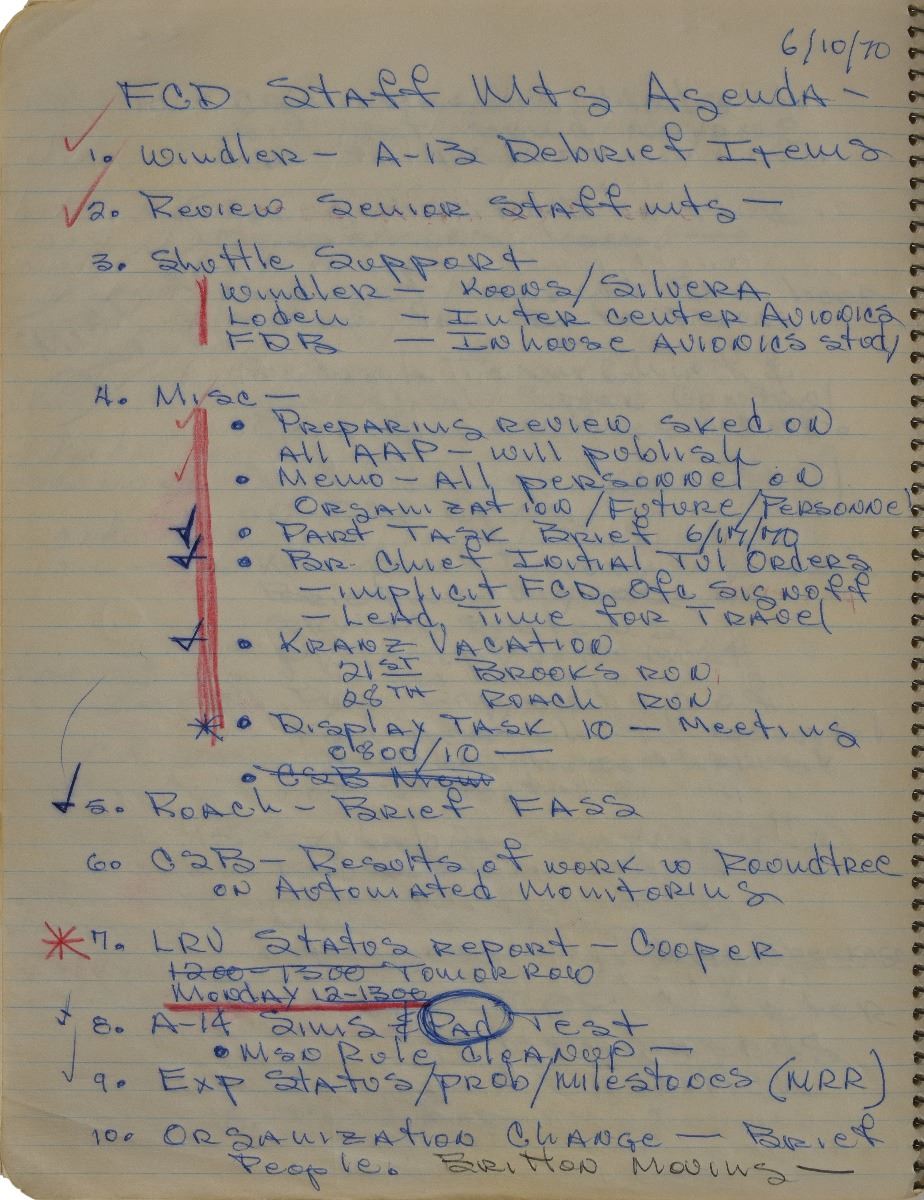 6/10/70
FCD Staff Mtg Agenda -
1. Windler - A-13 Debrief Items
2. Review Senior Staff mtg -
3. Shuttle Support
Windler - Koons/Silvera
Loden - Inter center Avionics
FDB - Inhouse Avionics study
4. Misc -
• Preparing review sked on
All AAP - will publish
• Memo - All personnel on
Organization/Future/Personnel
• Part Task Brief 6/17/70
• Br. Chief Initial Tvl Orders
- implicit FCD Ofc Signoff
- Lead Time for Travel
• Kranz Vacation
21ST Brooks Run
28TH Roach Run
• Display Task 10 - Meeting
0800/10 -
• CSB Mom
5. Roach - Brief FASS
6. CSB - Results of work w Roundtree
on Automated Monitoring
7. LRV Status report - Cooper
1200-1300 Tomorrow
Monday 12-1300
8. A-14 Sims & Pad Test
• Msn Rule Cleanup -
9. Exp Status/prob/milestones (MRR)
10. Organization Change - Brief
People. Britton Moving -